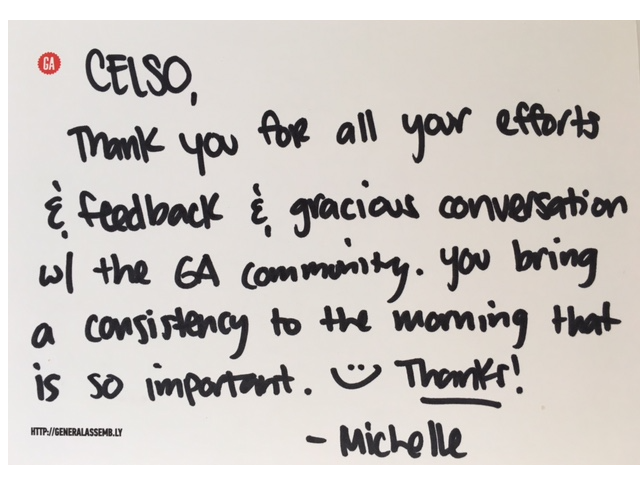 GA
CELSO,
Thank you for all your efforts
& feedback & gracious conversation
w/ the GA community. you bring
a consistency to the morning that
is so important. :) Thanks!
HTTP://GENERALASSEMB.LY
- Michelle